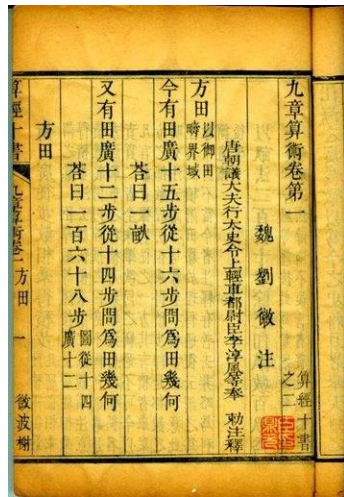 九章算術卷第一
算經十書
之二
魏 劉徽 注
唐朝議大夫行太史令上輕車都尉臣李淳風等奉 勅注釋
方田以御田
疇界域
今有田廣十五步從十六步問為田幾何
荅曰一畝
又有田廣十二步從十四步問為田幾何
荅曰一百六十八步圖從十四
廣十二
方田
算經十書
九章算術卷一 方田
一
微波榭